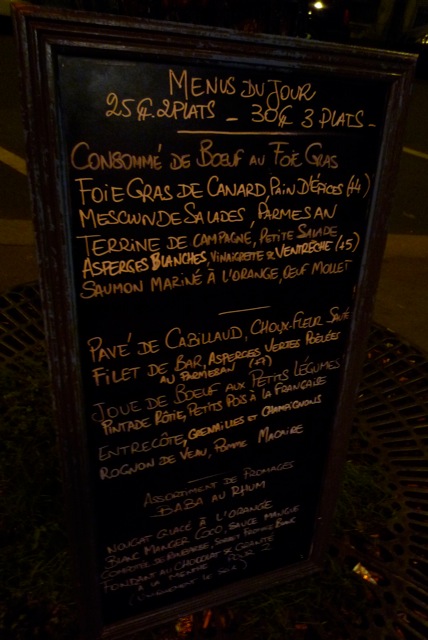 MENUS DU JOUR
25€ 2 PLATS - 30€ 3 PLATS -
CONSOMMÉ DE BOEUF AU FOIE GRAS
FOIE GRAS DE CANARD, PAIN D'ÉPICES (+4)
MESCLUN DE SALADES, PARMESAN
TERRINE DE CAMPAGNE, PETITE SALADE
ASPERGES BLANCHES, VINAIGRETTE & VENTRÈCHE (+5)
SAUMON MARINÉ À L'ORANGE, OEUF MOLLET
PAVÉ DE CABILLAUD, CHOUX-FLEUR SAUTÉ
FILET DE BAR, ASPERGES VERTES POÊLÉES
AU PARMESAN
JOUE DE BOEUF AUX PETITS LÉGUMES
PINTADE RÔTIE, PETITS POIS À LA FRANÇAISE
ENTRECÔTE, GRENAILLES ET CHAMPIGNONS
ROGNON DE VEAU, POMME MACAIRE
ASSORTIMENT DE FROMAGES
BABA AU RHUM
NOUGAT GLACÉ À L'ORANGE
BLANC MANGER COCO, SAUCE MANGUE
FONDANT AU CHOCOLAT